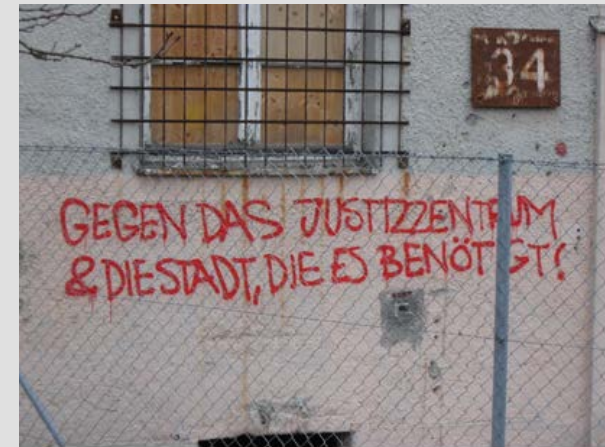 34
GEGEN DAS JUSTIZZENTRUM
& DIE STADT, DIE ES BENÖTIGT!